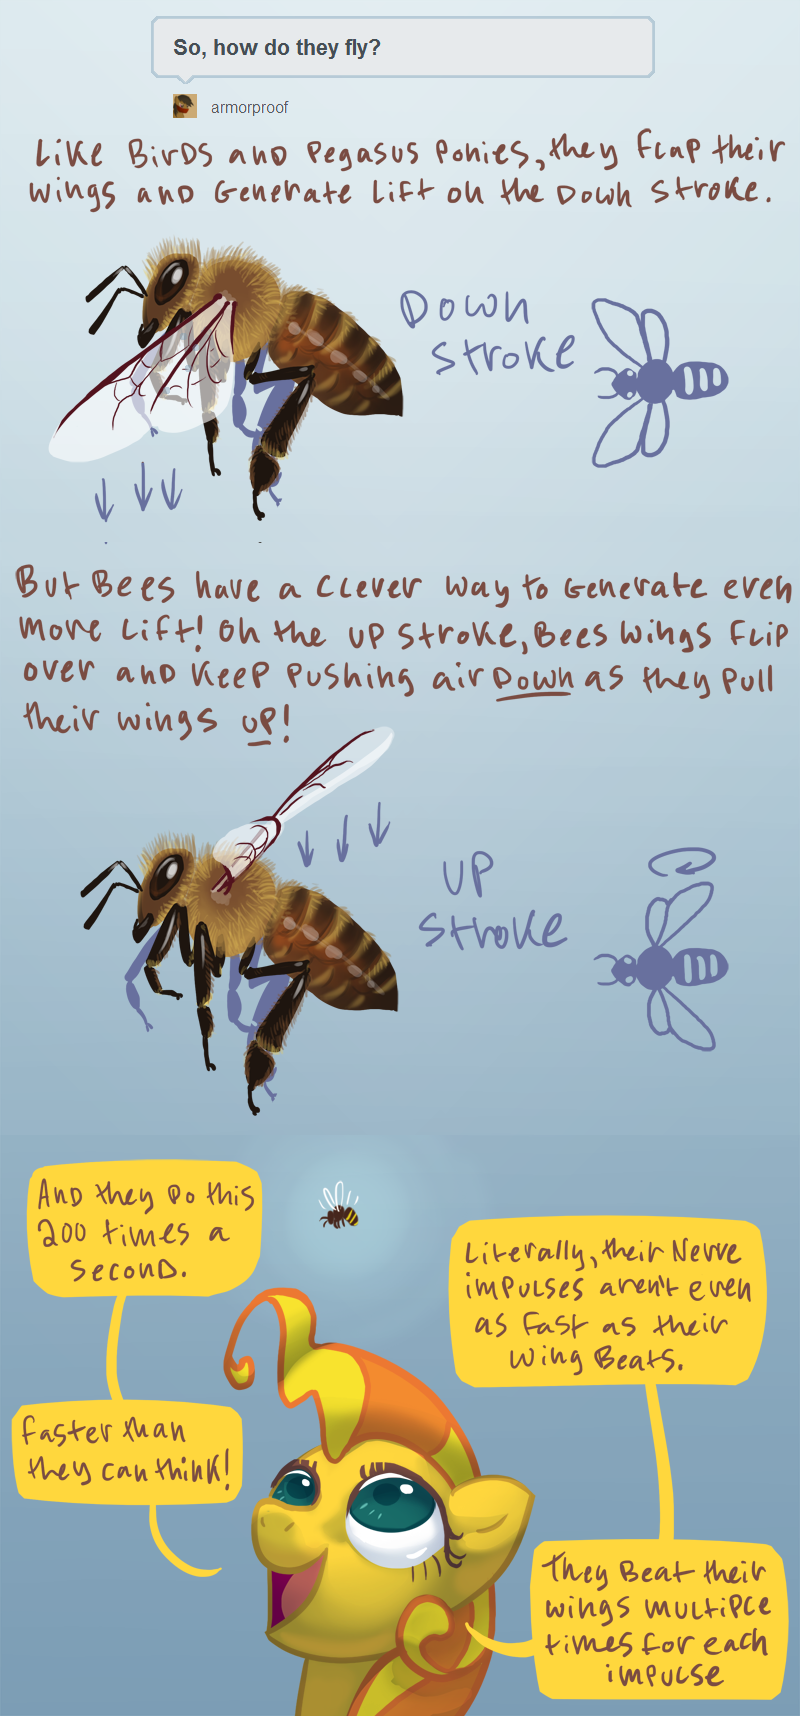 So, how do they fly?
armorproof
Like Birds and Pegasus Ponies, they flap their
wings and Generate Lift on the Down Stroke.
Down
stroke
But Bees have a clever way to Generate even
more Lift! On the up stroke, Bees wings flip
over and keep pushing air Down as they pull
their wings up!
UP
stroke
And they do this
200 times a
second.
Faster than
they can think!
Literally, their Nerve
impulses aren't even
as fast as their
wing Beats.
They Beat their
wings multiple
times for each
impulse